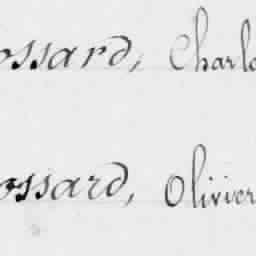 ossard, Charlo
ossard, Olivier